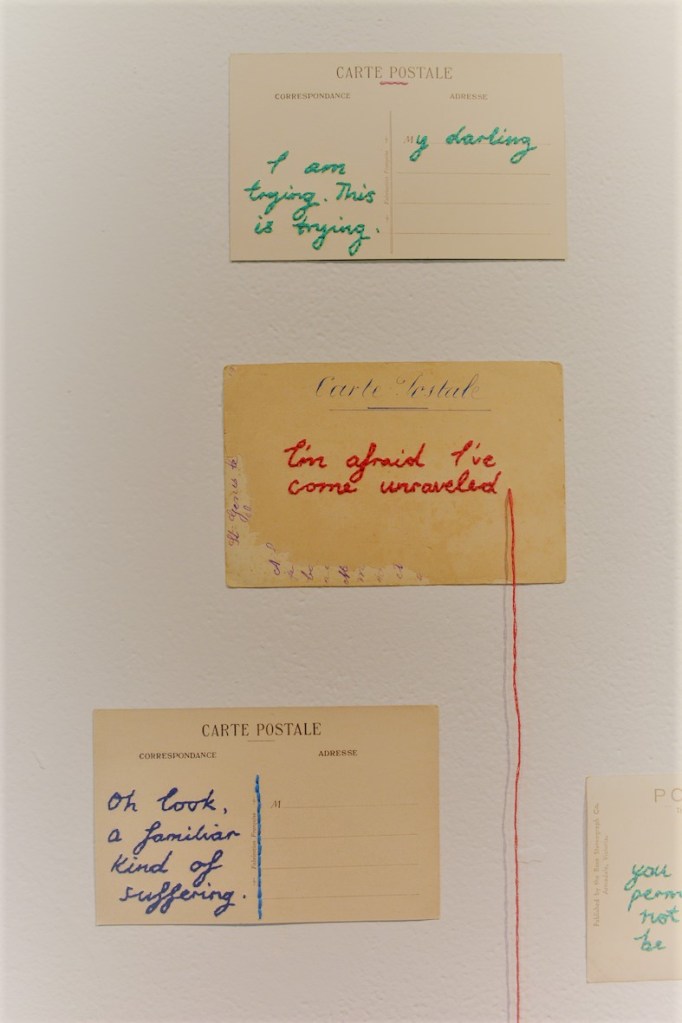 CARTE POSTALE
CORRESPONDANCE
ADRESSE
My darling
I am
trying. This
is trying.
Carte Postale
I'm afraid I've
come unraveled
CARTE POSTALE
CORRESPONDANCE
ADRESSE
M
Oh look,
a familiar
kind of
suffering.
PO
you
perm
not
be